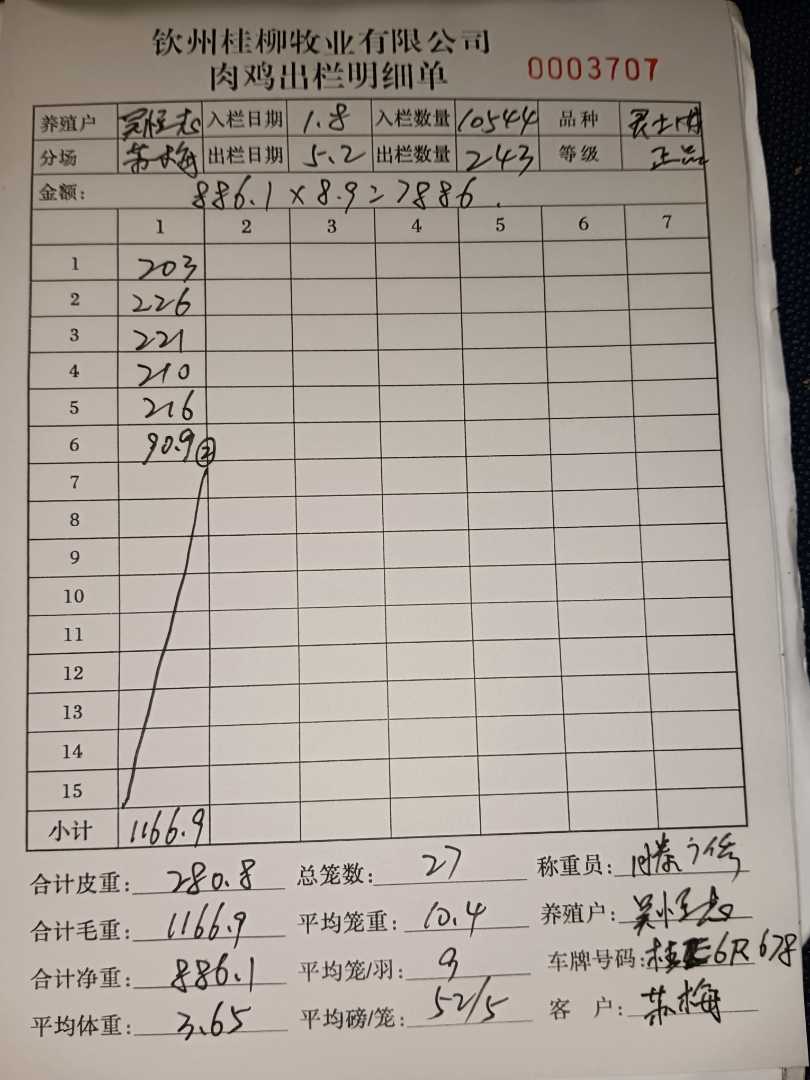 钦州桂柳牧业有限公司
肉鸡出栏明细单 0003707
养殖户 吴恒志 入栏日期 1.8 入栏数量 10544 品种
分场 苏梅 出栏日期 5.2 出栏数量 243 等级 正品
金额: 886.1×8.9=7886.
1 2 3 4 5 6 7
1 203
2 226
3 221
4 210
5 216
6 90.9②
7
8
9
10
11
12
13
14
15
小计 1166.9
合计皮重: 280.8 总笼数: 27 称重员:
合计毛重: 1166.9 平均笼重: 10.4 养殖户: 吴恒志
合计净重: 886.1 平均笼/羽: 9 车牌号码: 桂 6R678
平均体重: 3.65 平均磅/笼: 52/5 客 户: 苏梅